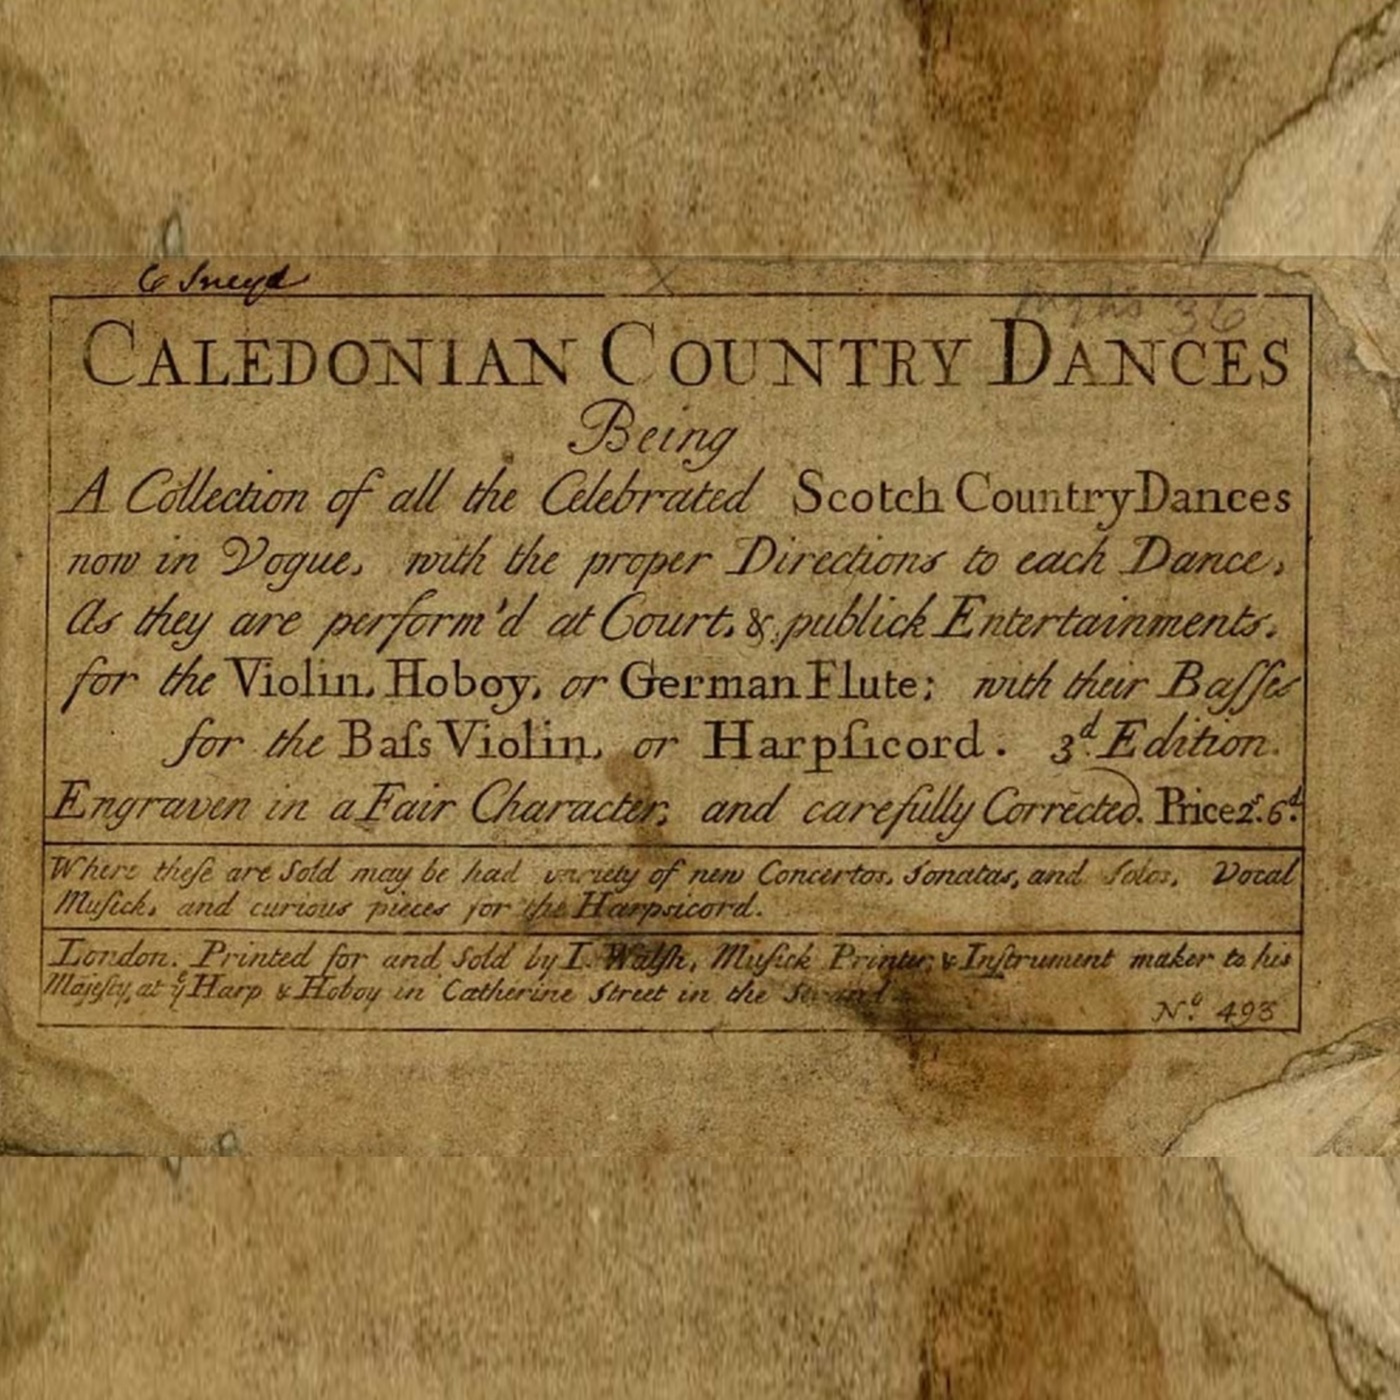 CALEDONIAN COUNTRY DANCES
Being
A Collection of all the Celebrated Scotch Country Dances
now in Vogue, with the proper Directions to each Dance,
As they are perform'd at Court, & publick Entertainments.
for the Violin, Hoboy, or German Flute; with their Baſſes
for the Baſs Violin, or Harpſicord. 3.ᵈ Edition.
Engraven in a Fair Character, and carefully Corrected. Price 2ˢ.6ᵈ.
Where theſe are Sold may be had variety of new Concertos, Sonatas, and Solos, Vocal
Muſick, and curious pieces for the Harpsicord.
London. Printed for and Sold by I. Walſh, Muſick Printer, & Inſtrument maker to his
Majeſty, at yᵉ Harp & Hoboy in Catherine Street in the Strand.
Nº. 493